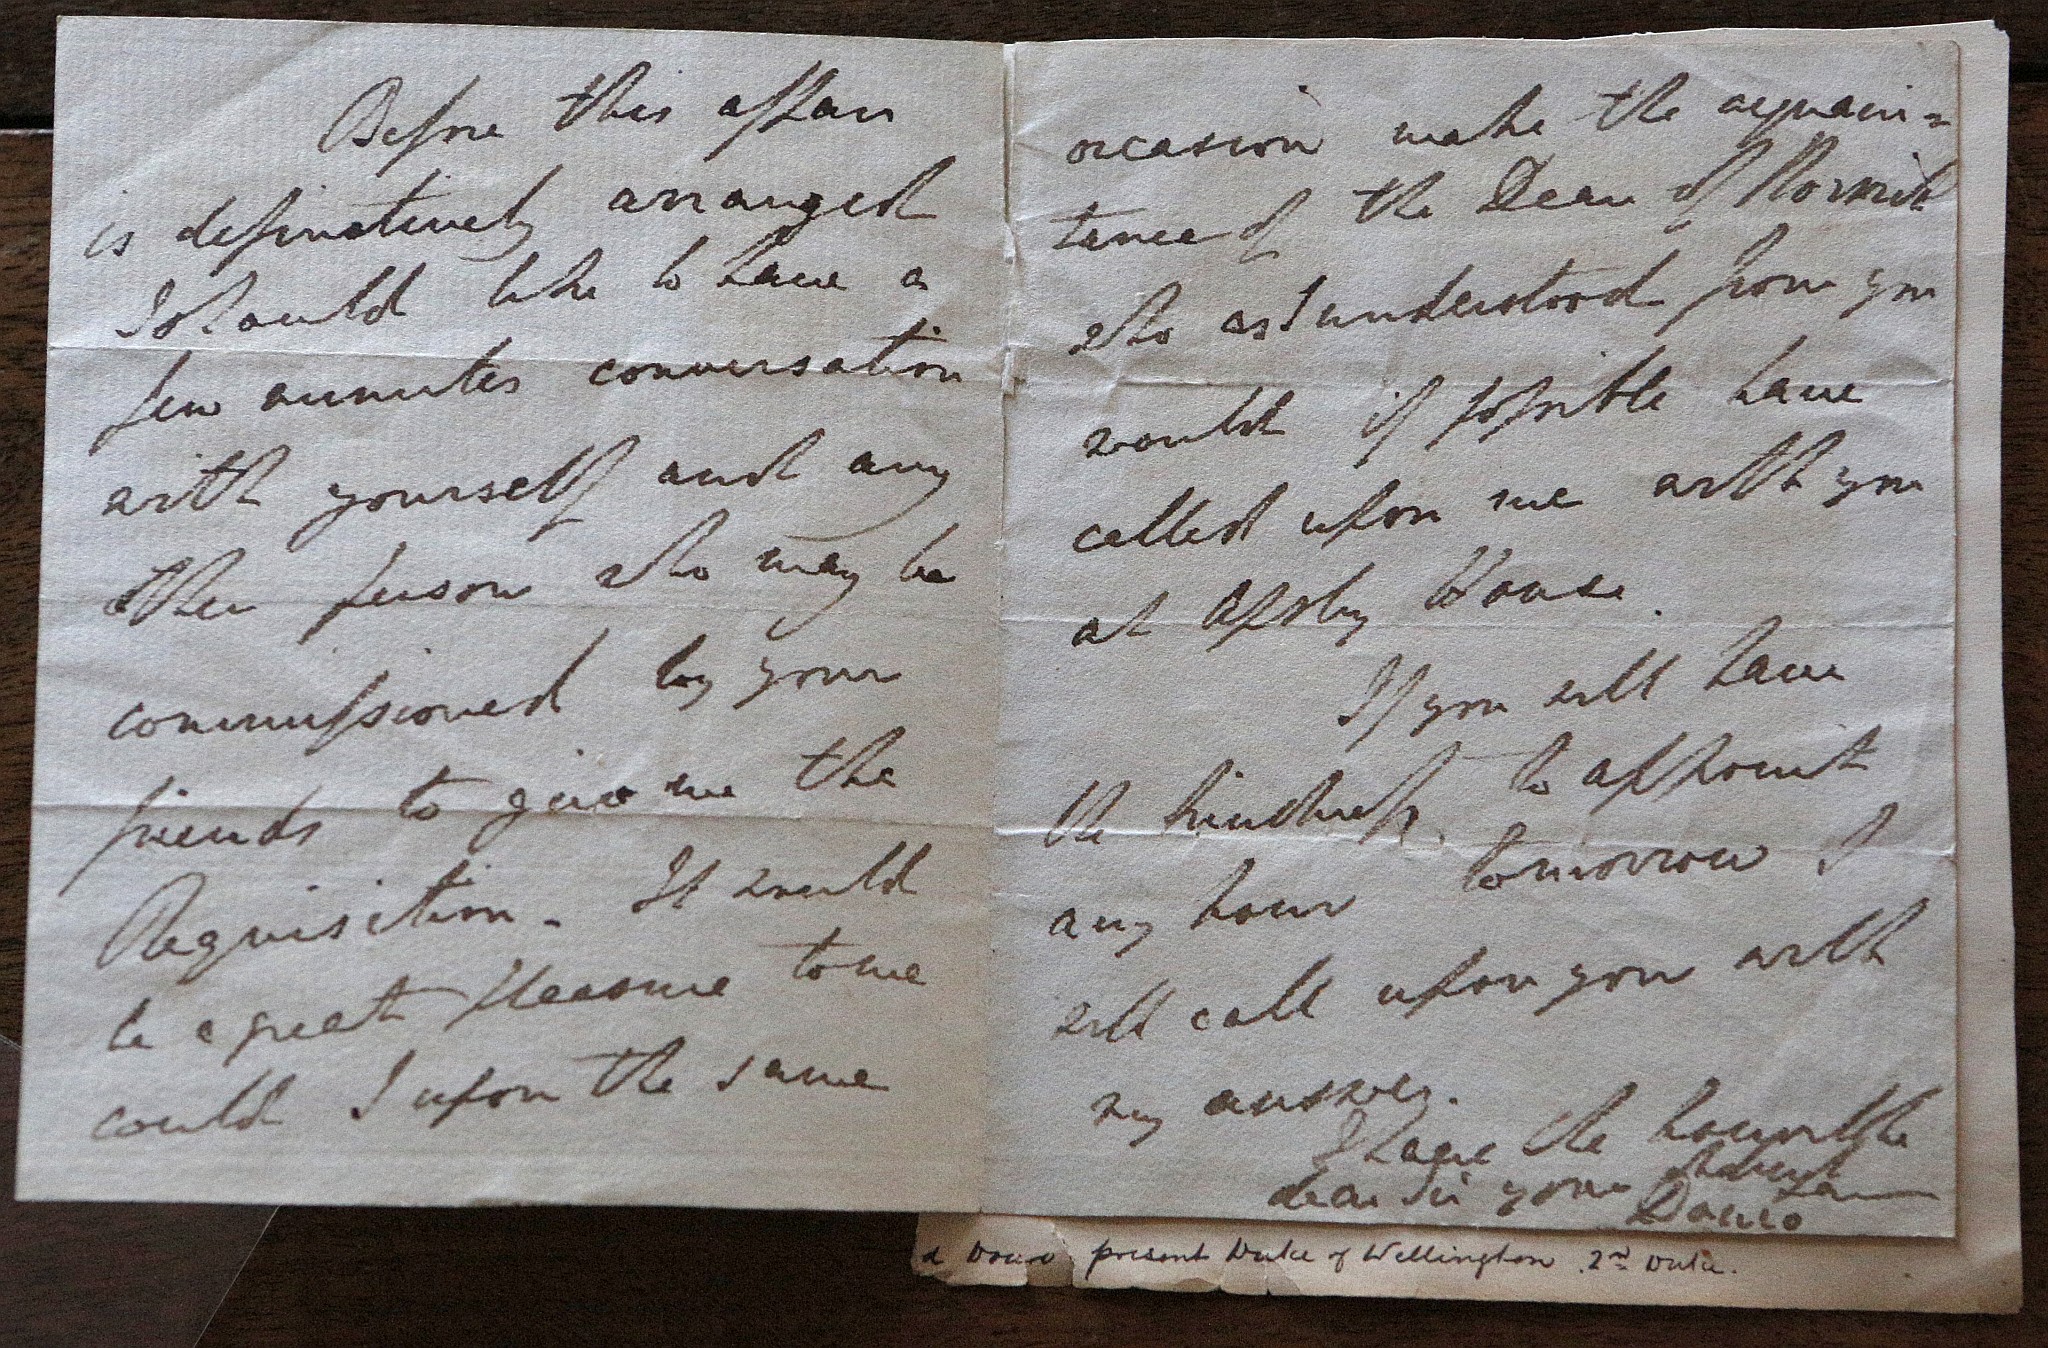 Before this affair
is definatively arranged
I should like to have a
few minutes conversation
with yourself and any
other person who may be
commissioned by your
friends to give me the
Requisition - It would
be a great pleasure to me
could I upon the same
occasion make the acquain=
tance of the Dean of Norwich
who as I understood from you
would if possible have
called upon me with you
at Apsley House.
If you will have
the kindness to appoint
any hour tomorrow I
will call upon you with
my answer.
I have the
dear Sir your
Douro
Douro present Duke of Wellington 2nd Duke.